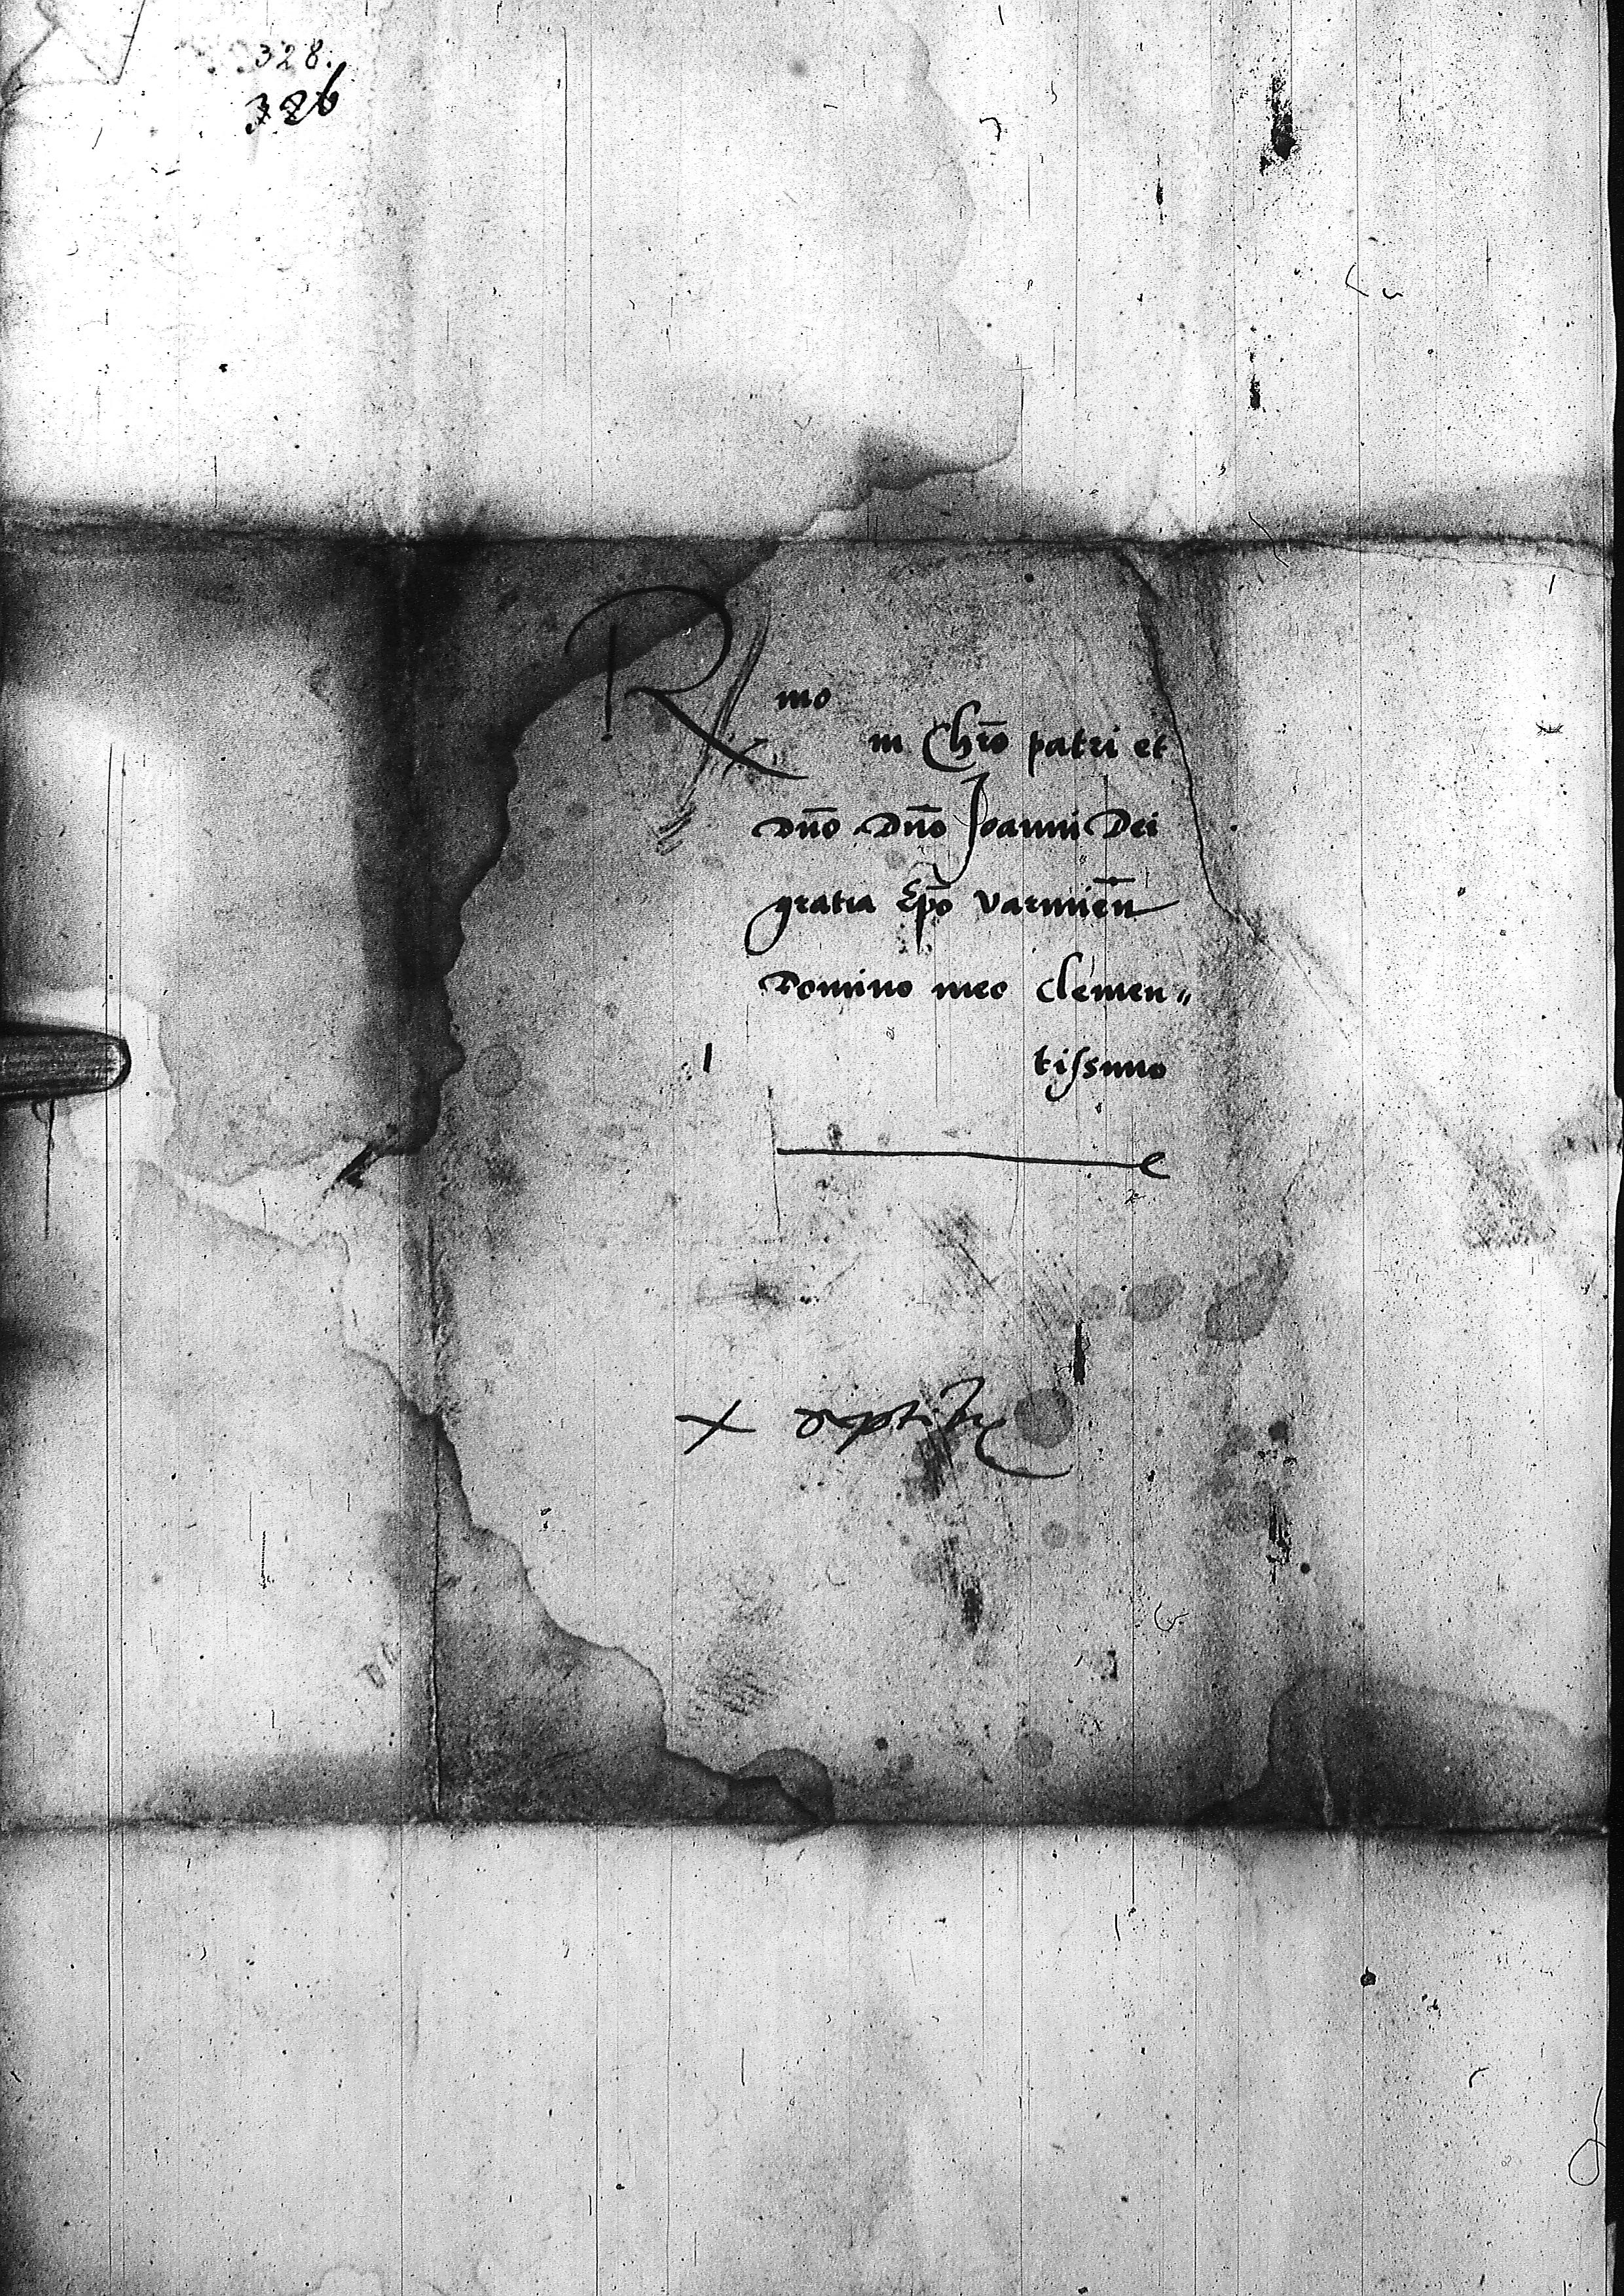 328.
326
R mo
in Chro̅ patri et
Dn̅o Dn̅o Joanni Dei
gratia Ep̅o Varmien̅
Domino meo clemen„
tissimo